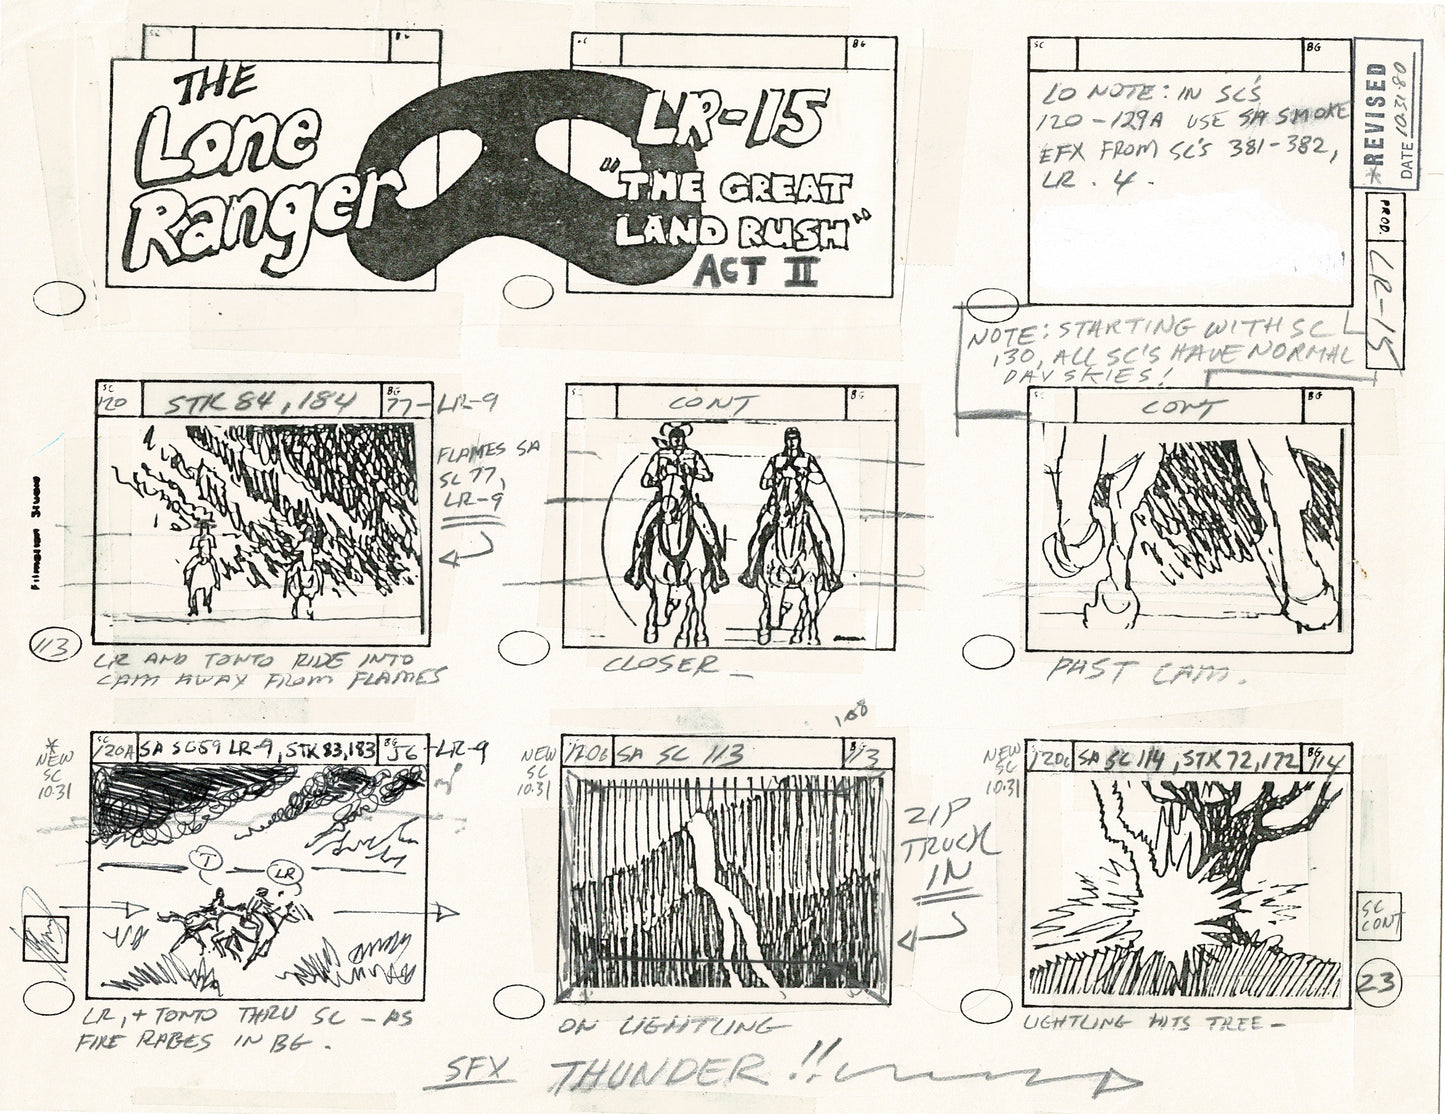 SC
BG
SC
BG
SC
BG
THE
Lone
Ranger
LR-15
"THE GREAT
LAND RUSH"
ACT II
LO NOTE: IN SC'S
120-129A USE SA SMOKE
EFX FROM SC'S 381-382,
LR. 4.
*REVISED
DATE 10.31.80
PROD.
LR-15
NOTE: STARTING WITH SC
130, ALL SC'S HAVE NORMAL
DAY SKIES!
SC
120
STK 84, 184
BG
77-LR-9
FLAMES SA
SC 77,
LR-9
SC
CONT
BG
SC
CONT
BG
Filmation Studio
113
LR AND TONTO RIDE INTO
CAM AWAY FROM FLAMES
CLOSER_
PAST CAM.
*
NEW
SC
10.31
SC
120A
SA SC 59 LR-9, STK 83,183
BG
56-LR-9
T
LR
NEW
SC
10.31
120B
SA SC 113
BG
113
108
ZIP
TRUCK
IN
NEW
SC
10.31
120C
SA SC 114, STK 72, 172
BG
114
SC
CONT
23
LR, + TONTO THRU SC - AS
FIRE RAGES IN BG.
ON LIGHTLING
LIGHTLING HITS TREE-
SFX THUNDER!!